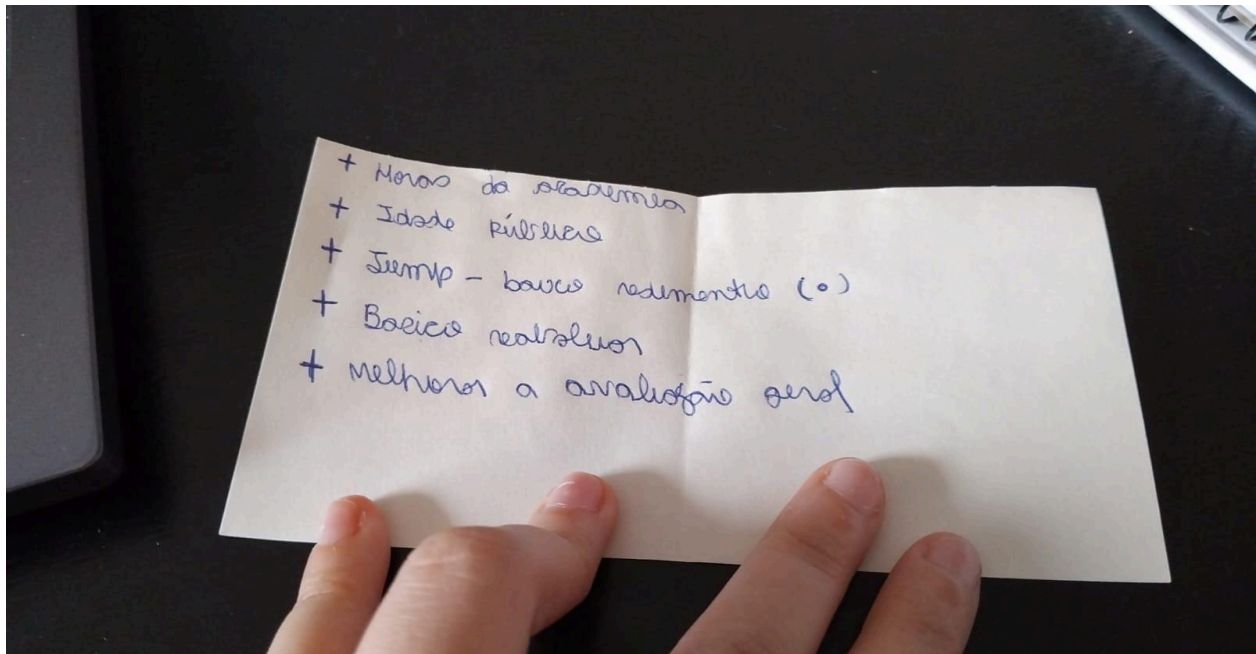 + Horas da academia
+ Idade público
+ Jump - baixo rendimento (0)
+ Basico
+ Melhorar a avaliação geral